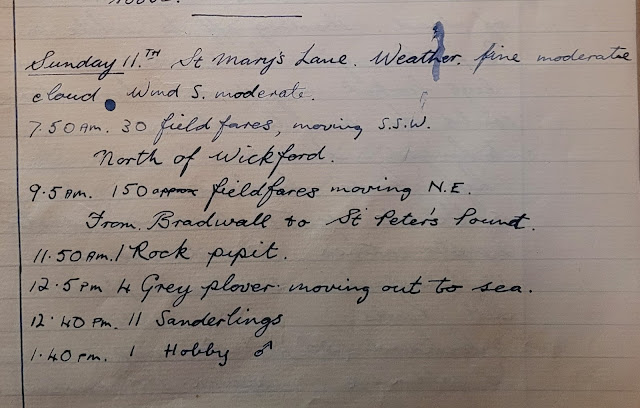 Sunday 11.TH St Mary's Lane. Weather. fine moderate
cloud. Wind S. moderate.
7.50 am. 30 fieldfares, moving S.S.W.
North of Wickford.
9.5 am. 150 approx fieldfares moving N.E.
From Bradwall to St Peter's Point.
11.50 am. 1 Rock pipit.
12.5 pm 4 Grey plover. moving out to sea.
12.40 pm. 11 Sanderlings
1.40 pm. 1 Hobby ♂